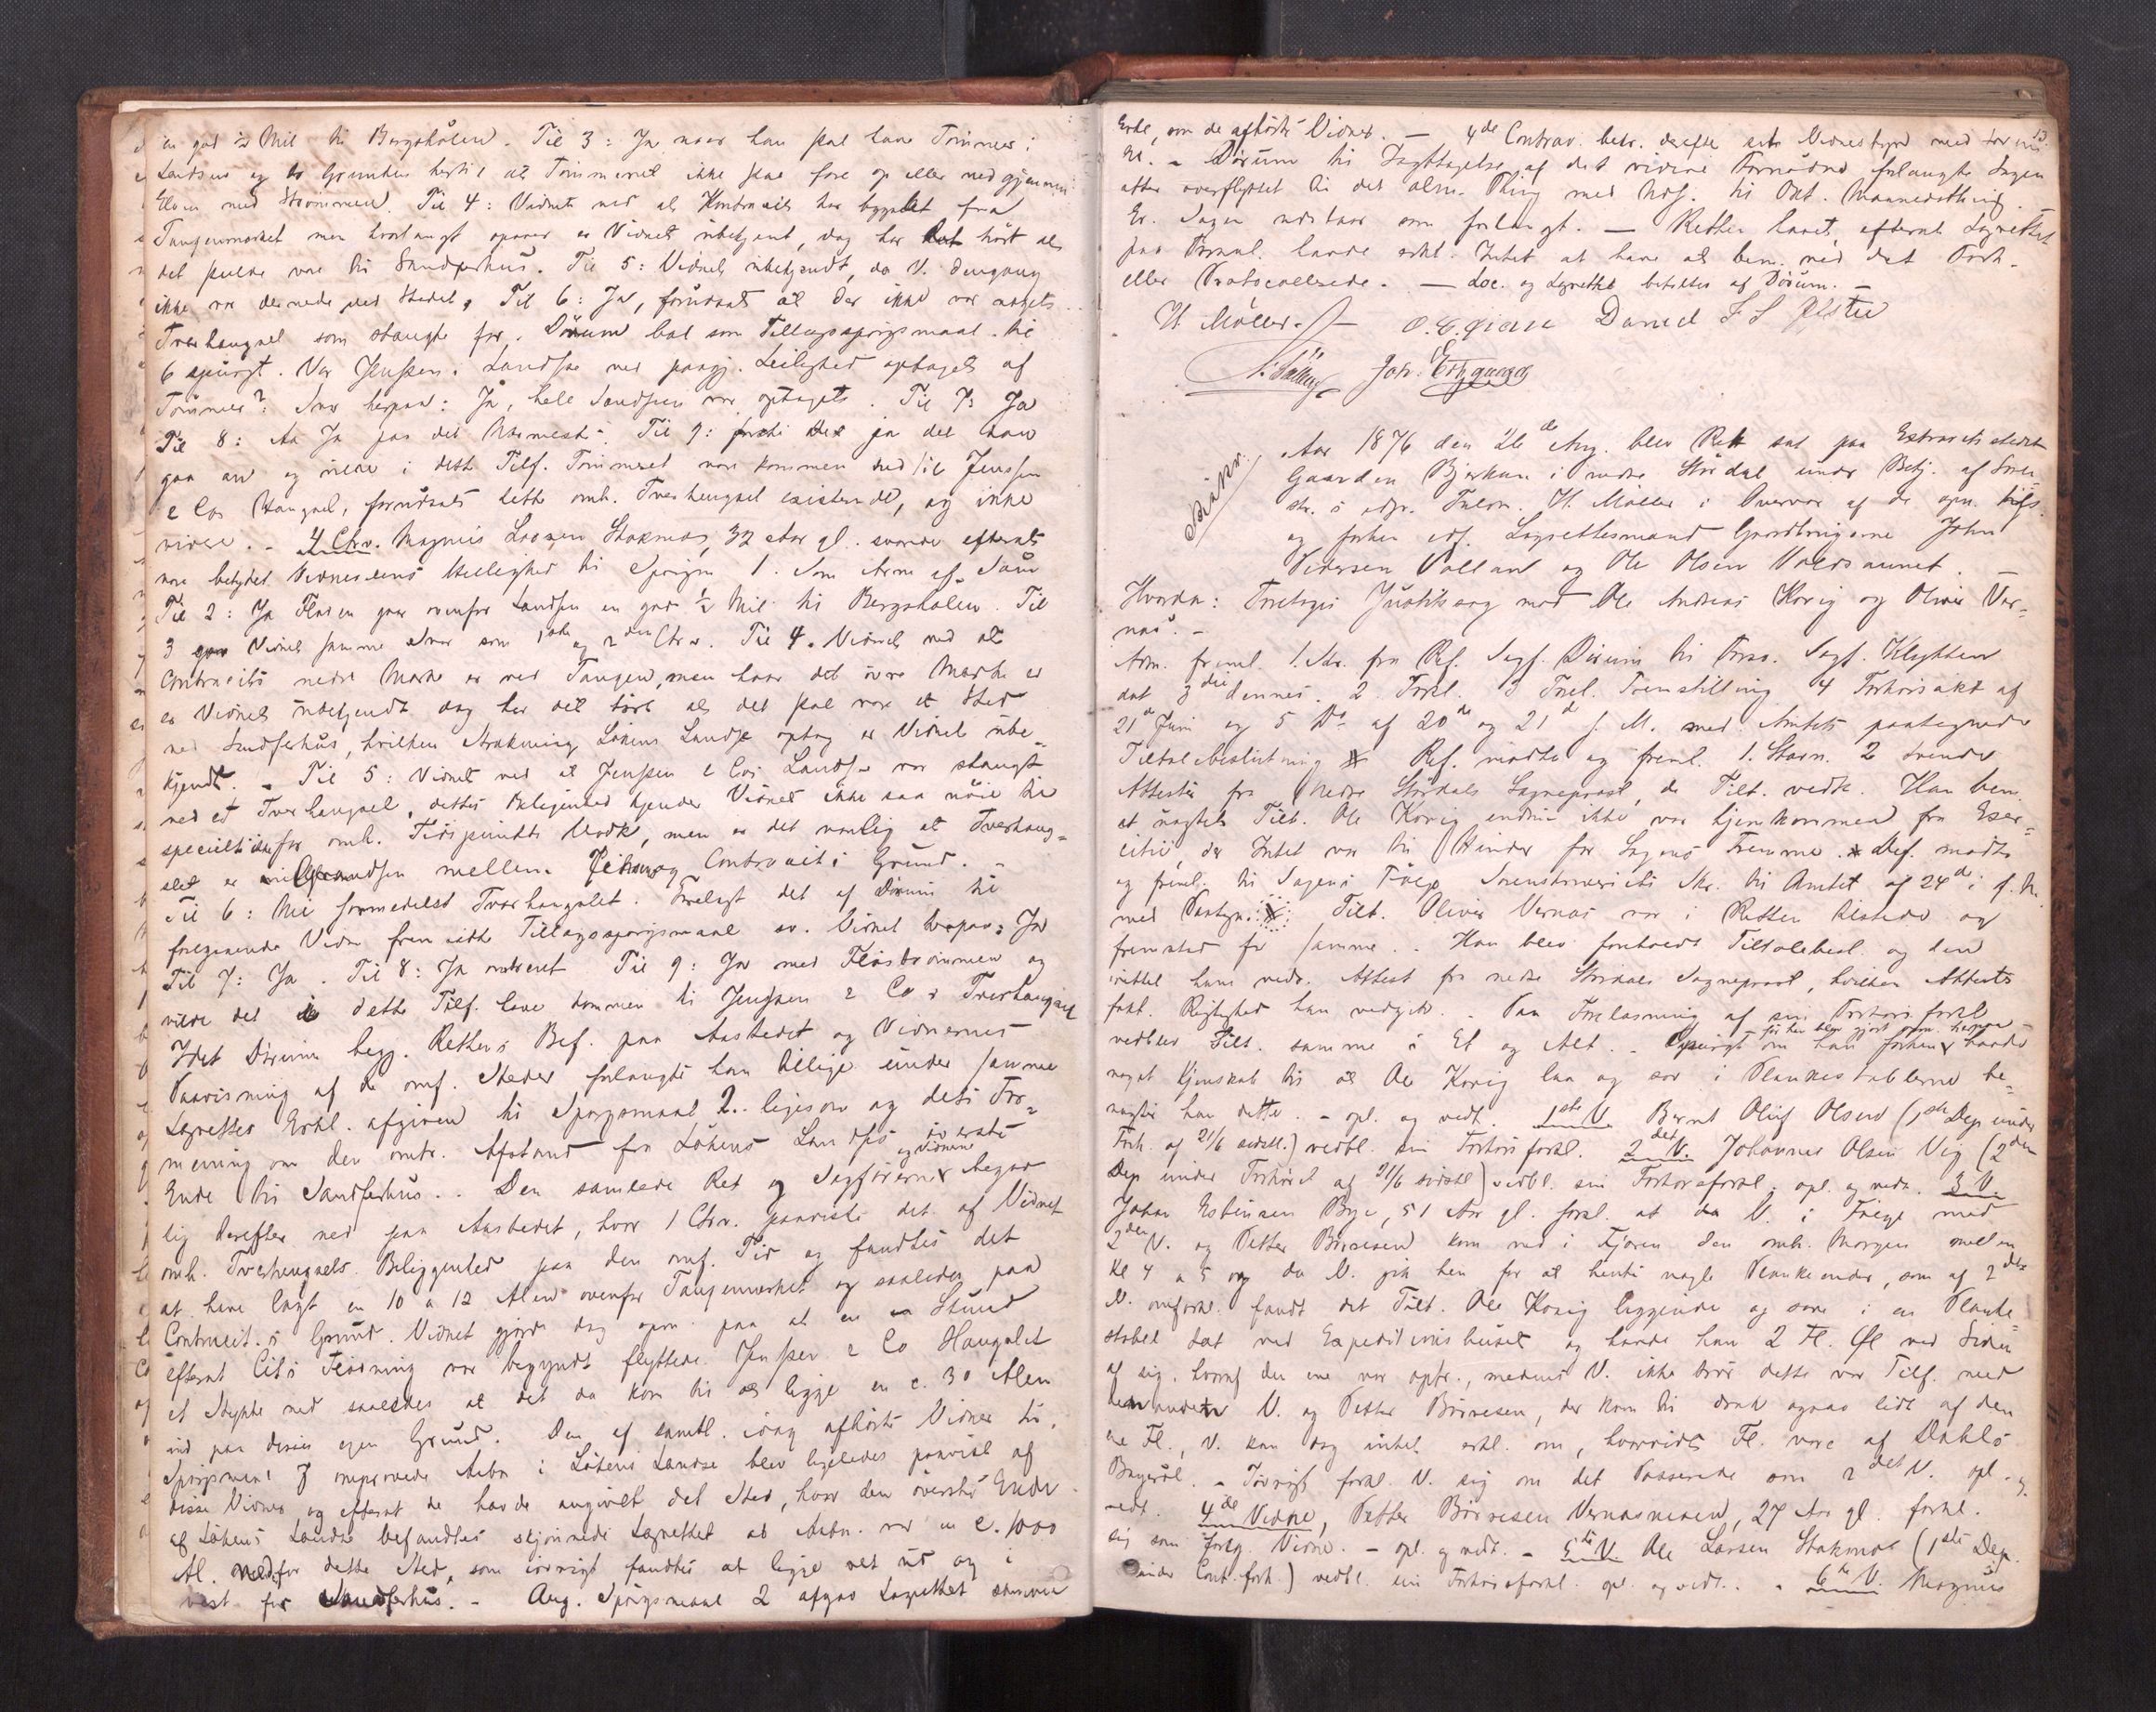 en god ½ Mil til Bergshølen. Til 3: Ja naar han skal have Tømmer i
Landsen og Grunden hertil at Tømmeret ikke skal fare op eller ned gjennem
Elven med Strømmen. Til 4: Vidnet ved at Kontracits har bygslet fra
Tangenmærket men hvorlangt opover er Vidnet ubekjent, dog har hørt at
det skulde være til Sandferhus. Til 5: Vidnet ubekjendt, da V. dengang
ikke var dernede ved Stedet. Til 6: Ja, forudsat at der ikke var noget
Tverhængsel som stængte for. Dørum bad som Tillægsspørgsmaal til
6 spurgt. Var Jenssens Landse ved paagj. Leilighed optaget af
Tømmer? Svar herpaa: Ja, hele Landsen var optaget. Til 7: Ja
Til 8: Ja paa det Nærmeste. Til 9: ja det kan
gaa an og vilde i dette Tilf. Tømmeret være kommen ned til Jenssen
& Cos Hængsel, forudsat dette omh. Tverhengsel existerede, og ikke
videre. - 4 Ctrv. Magnus Larsen Stokmo, 32 Aar gl. svarede efterat
være betydet Vidneedens Hellighed til Spørgsm 1. Som Arne af Saur
Til 2: Ja Floden gaar ovenfor Landsen en god ½ Mil til Bergshølen. Til
3 gav Vidnet samme Svar som 1ste og 2den Ctrv. Til 4. Vidnet ved at
Contracits nedre Mærke er ved Tangen, men hvor det øvre Mærke er
er Vidnet ubekjendt dog har det hørt at det skal være et Sted
ved Sandferhus, hvilken Strækning Løkens Landse optog er Vidnet ube-
kjendt. - Til 5: Vidnet ved at Jenssen & Cos Landse var stængt
ved et Tverhængsel, dettes Beliggenhed kjender Vidnet ikke saa nøie til
specielt for omh. Tidspunkts Vedk, men er det vanlig at Tverhæng-
slet er i Grændsen mellem og Contracits Grund. -
Til 6: Nei formedelst Tverhængslet. Forelagt det af Dørum til
foregaaende Vidne fremsatte Tillægsspørgsmaal sv. Vidnet herpaa: Ja
Til 7: Ja. Til 8: Ja omtrent Til 9: Ja med Flodstrømmen og
vilde det i dette Tilf. have kommen til Jenssen & Co s Tverhængsel
Idet Dørum begj. Rettens Bef. paa Aastedet og Vidnernes
Paavisning af de omf. Steder forlangte han tillige under samme
Lagrettes Erkl. afgiven til Spørgsmaal 2. ligesom og dets For-
mening om den omtr. Afstand fra Løkens Landses øverste
Ende til Sandferhus. . Den samlede Ret og Sagførerne og Vidnerne begav
sig derefter ned paa Aastedet, hvor 1 Ctrv. paaviste det af Vidnet
omh. Tverhengsels Beliggenhed paa den omf. Tid og fandtes det
at have lagt en 10 a 12 Alen ovenfor Tangenmærket og saaledes paa
Contracit.s Grund. Vidnet gjorde dog opm. paa at en Stund
efterat Cits Flødning var begyndt flyttede Jenssen & Co Hængslet
et Stykke ned saaledes at det da kom til at ligge en c. 30 Alen
ind paa disses egen Grund. Den af samtl. idag afhørte Vidner til
Spørgsmaal 7 omprovede Aabn i Løkens Landse blev ligeledes paavist af
disse Vidner og efterat de havde angivet det Sted, hvor den øverste Ende
af Løkens Landse befandtes skjønnede Lagrettet at Aabn. var en c. 1000
Al. nedfor dette Sted, som iøvrigt fandtes at ligge ret ud og i
vest for Sandferhus. - Ang. Spørgsmaal 2 afgav Lagrettet samme
Erkl, som de afhørte Vidner. - 4de Contrav. bekr. derefter sit Vidnesbyrd med for
Ed. - Dørum til Iagttagelse af det videre Fornødne forlangte Sagen
atter overflyttet til det alm. Thing med Uds. til Okt. Maanedsthing. -
Er. Sagen udstaar som forlangt. - Retten hævet, efterat Lagrettet
paa Formul. havde erkl. Intet at have at bem. ved det Forh.
eller Protocollerede. - Loc. og Lagrettet betaltes af Dørum. -
H Møller. Daniel
Aar 1876 den 26de Aug. blev Ret sat paa Extraretsstedet
Gaarden Bjerkan i nedre Stjørdal under Betj. af Soren-
skr. s edsv. Fuldm. H. Møller i Overvær af de opn.
og forhen edf. Lagrettesmænd Gaardbrugerne John
Pedersen Vollan og Ole Olsen Valdsaunet. -
Hvorda: Foretoges Justitssag mod Ole Andreas Kovig og Oliver Ver-
næs. -
Adm. freml. 1. Skr. fra Ref. Sagf. Dørum til Prso. Sagf. Klykken
dat 3die dennes. 2. Forkl. 3 Fuel. Fremstilling 4 Forhørsakt af
21de Juni og 5 Do af 20de og 21de f. M. med Amtets paategnede
Tiltalebeslutning Ref. mødte og freml. 1. Stævn. 2 tvende
Attester fra Nedre Stjørdals Sogneprest, de Tilt. vedk. Han bem.
at nægtet Tilt. Ole Kovig endnu ikke var hjemkommen fra Exer-
citie, der Intet var til Hinder for Sagens Fremme. Def. mødte
og freml. til Sagens Følge Sorenskriverets Skr. til Amtet af 24de f. M.
med Paategn. Tilt. Oliver Vernæs var i Retten tilstede og
fremstod for samme. . Han blev foreholdt Tiltalebesl. og den
indtil ham vedk. Attest fra nedre Stjørdals Sogneprest, hvilken Attests
fakt. Rigtighed han vedgik. . Paa Forelæsning af sin Forhørsforkl
vedblev Tilt. samme i Et og Alt. - Spurgt om han forhen før han blev gjort opm. herpaa havde
noget Kjendskab til at Ole Kovig laa og sov i Plankestablerne be-
nægter han dette. - opl. og vedt. 1ste V. Bernt Oluf Olsen (1ste Dep under
Forh. af 21/6 sidstl.) vedbl. sin Forhørsforkl. 2det V. Johannes Olsen Vig (2den
Dep under Forhøret af 21/6 sidstl) vedbl. sin Forhørsforkl. opl. og vedt. 3 V.
Johan Esbensen Bye, 51 Aar gl. forkl. at da V. i Følge med
2den V. og Petter Børresen kom ned i Fjæren den omh. Morgen mellem
Kl 4 a 5 og da V. gik hen for at hente nogle Plankeender, som af 2det
V. omfork. fandt det Tilt. Ole Kovig liggende og sove i en Planke-
stabel tæt ved Expeditionshuset og havde han 2 Fl. Øl ved Siden
af sig, hvoraf den ene var optr., medens V. ikke tror dette var Tilf. med
den anden V. og Petter Børresen, der kom til drak ogsaa lidt af den
ene Fl., V. kan dog intet erkl. om, hvorvidt Fl. vare af Dahls
Bayerøl. - Iøvrigt forkl. V. sig om det Passerede som 2det V. opl. og
vedt. 4de Vidne, Petter Børresen Vernæsmoen, 27 Aar gl. forkl.
sig som forrg. Vidne. - opl. og vedt. - 5te V. Ole Larsen Stokmo (1ste Dep.
under Cont. forh.) vedbl. sin Forhørsforkl. opl. og vedt. . - 6te V. Magnus